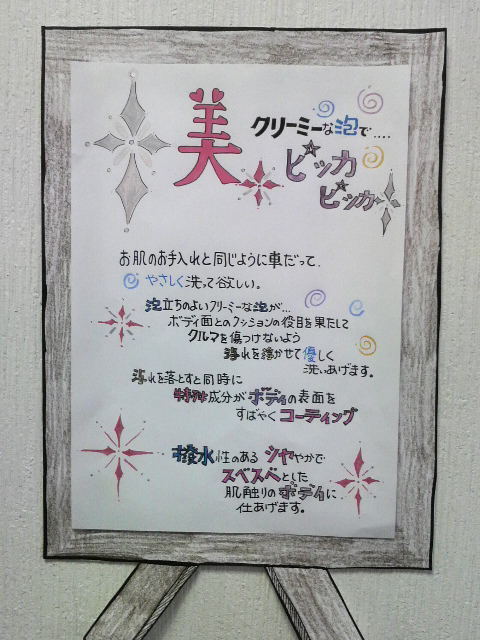 美
クリーミーな泡で....
ピッカ
ピッカ
お肌のお手入れと同じように車だって、
やさしく洗って欲しい。
泡立ちのよいクリーミーな泡が...
ボディ面とのクッションの役目を果たして
クルマを傷つけないよう
汚れを浮かせて優しく
洗いあげます。
汚れを落とすと同時に
特殊成分がボディの表面を
すばやくコーティング
撥水性のあるツヤやかで
スベスベとした
肌触りのボディに
仕あげます。